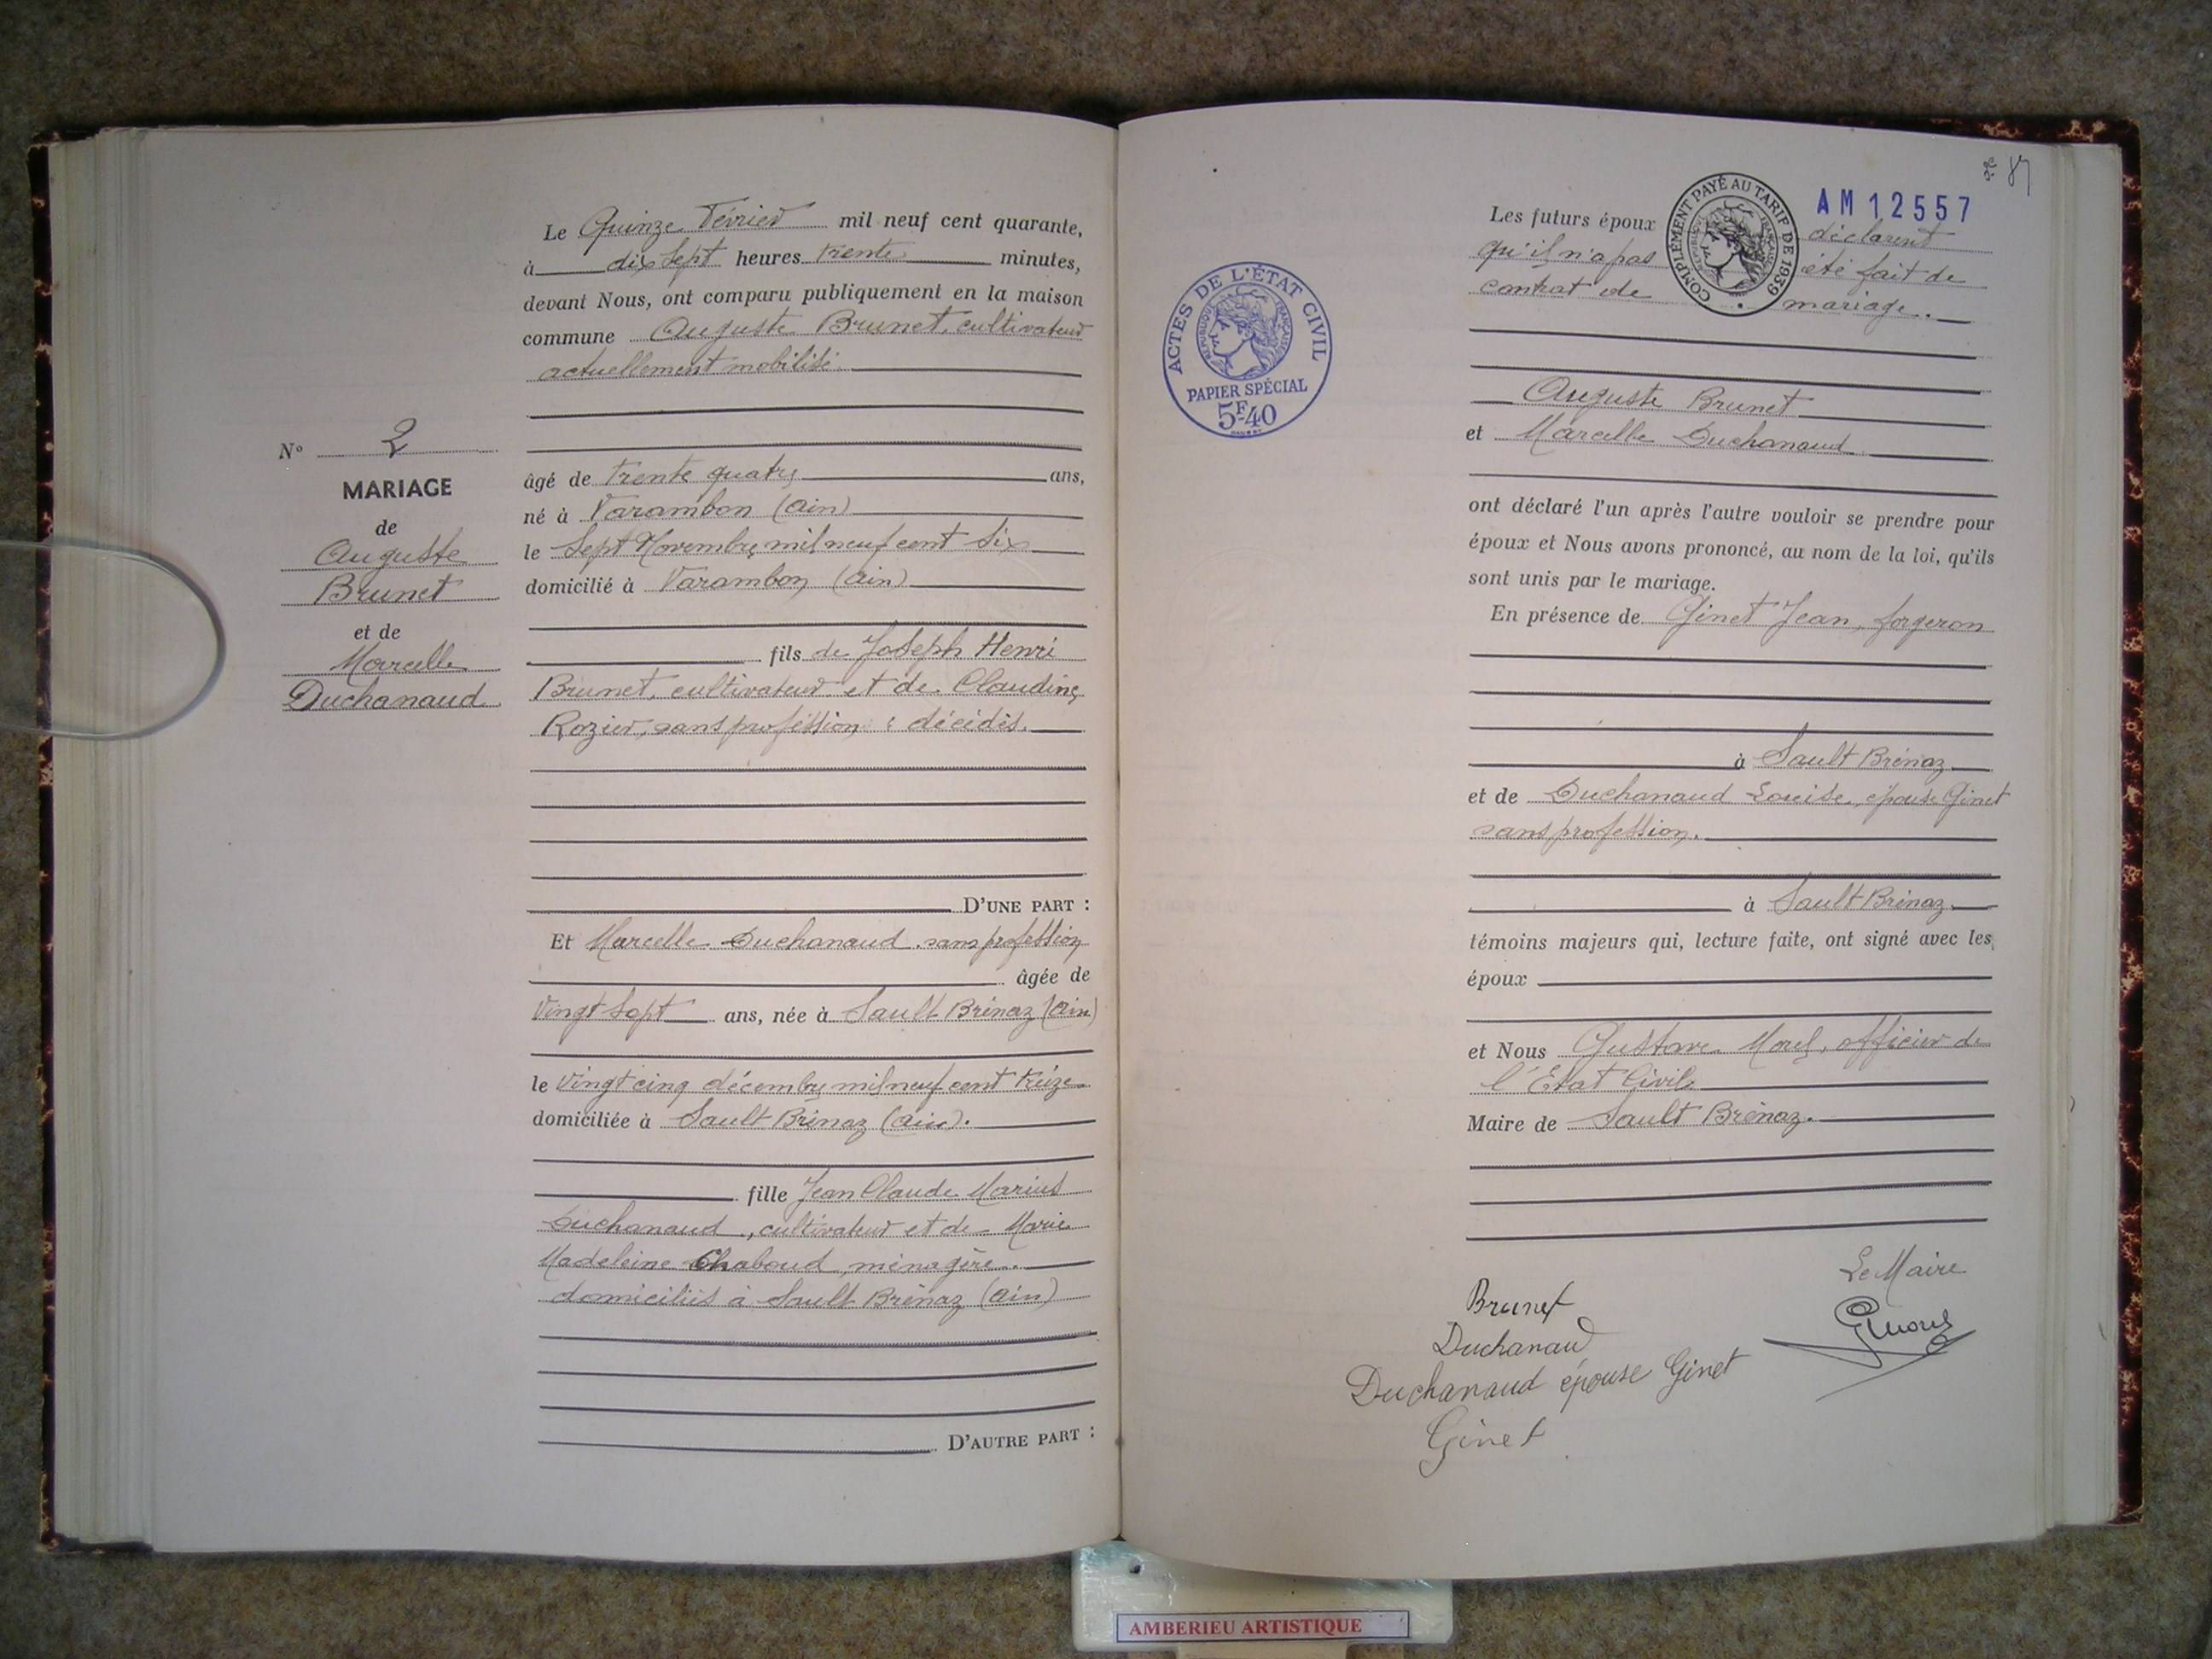 Le Quinze Février mil neuf cent quarante,
à dix sept heures trente minutes,
devant Nous, ont comparu publiquement en la maison
commune Auguste Brunet, cultivateur
actuellement mobilisé.
N° 2
MARIAGE
de
Auguste
Brunet
et de
Marcelle
Duchanaud
âgé de trente quatre ans,
né à Varambon (Ain)
le Sept Novembre mil neuf cent Six
domicilié à Varambon (Ain)
fils de Joseph Henri
Brunet, cultivateur et de Claudine
Rozier, sans profession : décédés.
D'UNE PART :
Et Marcelle Duchanaud, sans profession
âgée de
Vingt Sept ans, née à Sault Brénaz (Ain)
le Vingt cinq décembre mil neuf cent treize
domiciliée à Sault Brénaz (Ain).
fille Jean Claude Marius
Duchanaud, cultivateur et de Marie
Madeleine Chaboud, ménagère.
domiciliés à Sault Brénaz (Ain)
D'AUTRE PART :
ACTES DE L'ÉTAT CIVIL
RÉPUBLIQUE FRANÇAISE
PAPIER SPÉCIAL
5F40
87
AM12557
COMPLÉMENT PAYÉ AU TARIF DE 1939
RÉPUBLIQUE FRANÇAISE
Les futurs époux déclarent
qu'il n'a pas été fait de
contrat de mariage.
Auguste Brunet
et Marcelle Duchanaud
ont déclaré l'un après l'autre vouloir se prendre pour
époux et Nous avons prononcé, au nom de la loi, qu'ils
sont unis par le mariage.
En présence de Ginet Jean, forgeron
à Sault Brénaz
et de Duchanaud Louise, épouse Ginet
sans profession.
à Sault Brénaz
témoins majeurs qui, lecture faite, ont signé avec les
époux
et Nous Gustave Morel, officier de
l'État Civil
Maire de Sault Brénaz.
Le Maire
Brunet
GMorel
Duchanaud
Duchanaud épouse Ginet
Ginet
AMBERIEU ARTISTIQUE